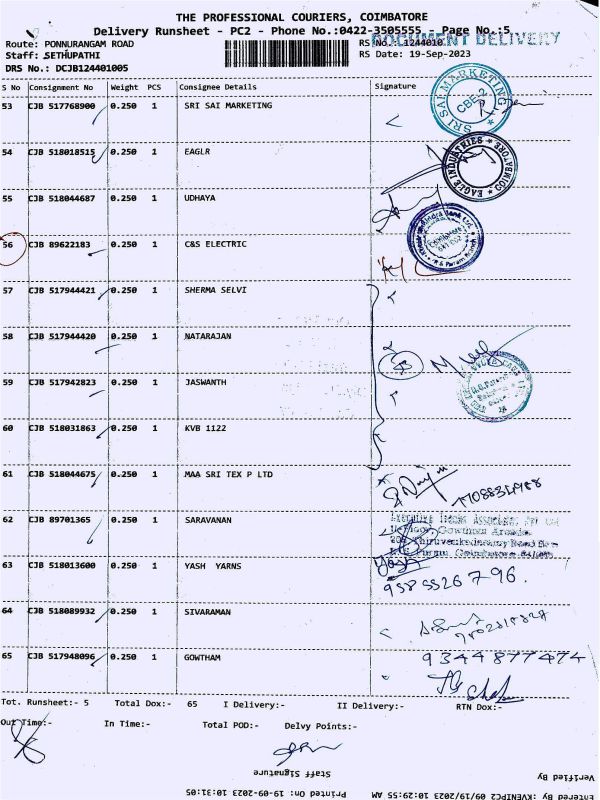 THE PROFESSIONAL COURIERS, COIMBATORE
Delivery Runsheet - PC2 - Phone No.:0422-3505555 Page No.:5
DOCUMENT DELIVERY
Route: PONNURANGAM ROAD RS No.: 1244010
Staff: SETHUPATHI RS Date: 19-Sep-2023
DRS No.: DCJB124401005
S No Consignment No Weight PCS Consignee Details Signature
53 CJB 517768900 0.250 1 SRI SAI MARKETING
SRI SAI MARKETING CBE-2
54 CJB 518018515 0.250 1 EAGLR
EAGLE INDUSTRIES COIMBATORE
55 CJB 518044687 0.250 1 UDHAYA
56 CJB 89622183 0.250 1 C&S ELECTRIC
57 CJB 517944421 0.250 1 SHERMA SELVI
58 CJB 517944420 0.250 1 NATARAJAN
59 CJB 517942823 0.250 1 JASWANTH
60 CJB 518031863 0.250 1 KVB 1122
61 CJB 518044675 0.250 1 MAA SRI TEX P LTD
62 CJB 89701365 0.250 1 SARAVANAN
63 CJB 518013600 0.250 1 YASH YARNS
64 CJB 518089932 0.250 1 SIVARAMAN
65 CJB 517948096 0.250 1 GOWTHAM
9344877474
Tot. Runsheet:- 5 Total Dox:- 65 I Delivery:- II Delivery:- RTN Dox:-
Out Time:- In Time:- Total POD:- Delvy Points:-
Staff Signature
Verified By
Printed On: 19-09-2023 10:31:05
Entered By: KVENIPC2 09/19/2023 10:29:55 AM